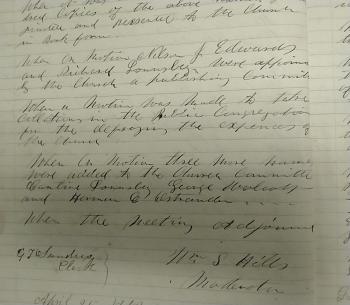 When it was
dred Copies of the above
printed and presented to the Church
in Book form.
When On Motion Nelson J. Edwards
and Richard Lounsley were appoin
by the Church a publishing Committe
When a Motion was made to take
Collections in the Public Congregation
for the defraying the expences of
the Church
When On Motion three more names
were added to the Church Committe
Lounsley George Wolcott
and Herman C Ostrander
When the Meeting Adjourned
G T Sanders
Clerk
Wm S Hills
Moderator
April